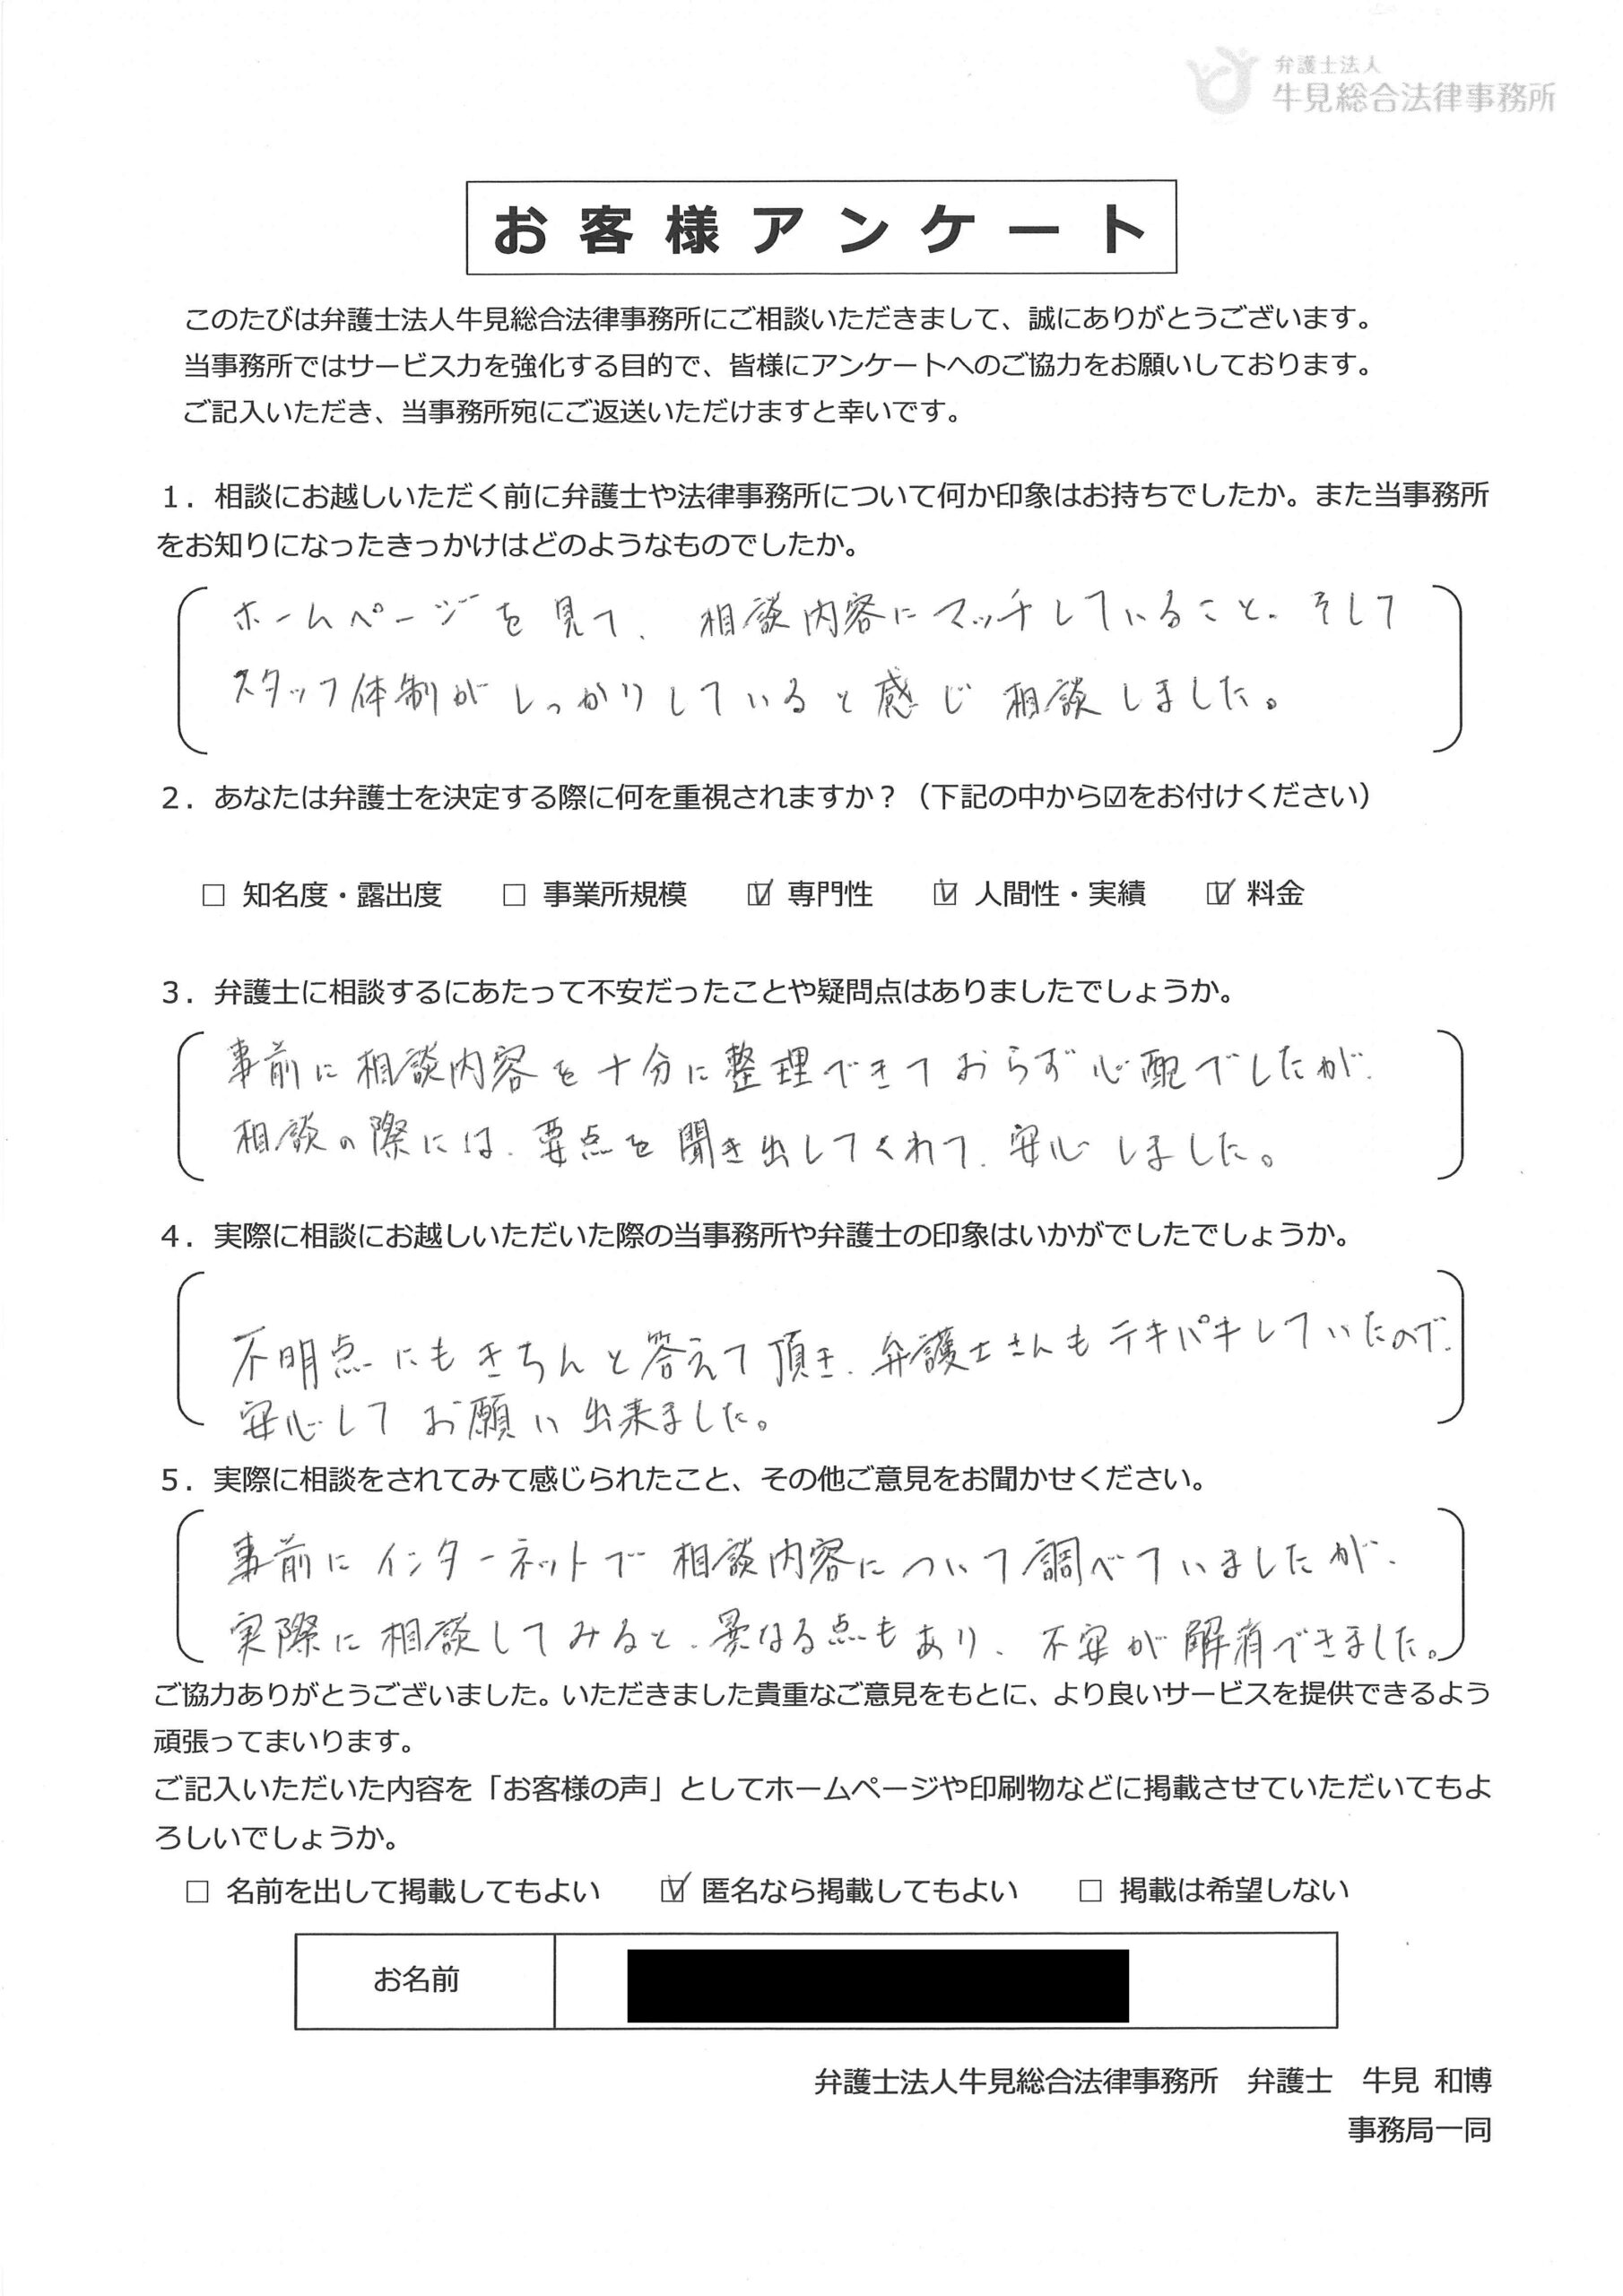 弁護士法人
牛見総合法律事務所
お客様アンケート
このたびは弁護士法人牛見総合法律事務所にご相談いただきまして、誠にありがとうございます。
当事務所ではサービス力を強化する目的で、皆様にアンケートへのご協力をお願いしております。
ご記入いただき、当事務所宛にご返送いただけますと幸いです。
１．相談にお越しいただく前に弁護士や法律事務所について何か印象はお持ちでしたか。また当事務所
をお知りになったきっかけはどのようなものでしたか。
ホームページを見て、相談内容にマッチしていること、そして
スタッフ体制がしっかりしていると感じ相談しました。
２．あなたは弁護士を決定する際に何を重視されますか？（下記の中から☑をお付けください）
□ 知名度・露出度 □ 事業所規模 ☑ 専門性 ☑ 人間性・実績 ☑ 料金
３．弁護士に相談するにあたって不安だったことや疑問点はありましたでしょうか。
事前に相談内容を十分に整理できておらず心配でしたが、
相談の際には、要点を聞き出してくれて、安心しました。
４．実際に相談にお越しいただいた際の当事務所や弁護士の印象はいかがでしたでしょうか。
不明点にもきちんと答えて頂き、弁護士さんもテキパキしていたので、
安心してお願い出来ました。
５．実際に相談をされてみて感じられたこと、その他ご意見をお聞かせください。
事前にインターネットで相談内容について調べていましたが、
実際に相談してみると、異なる点もあり、不安が解消できました。
ご協力ありがとうございました。いただきました貴重なご意見をもとに、より良いサービスを提供できるよう
頑張ってまいります。
ご記入いただいた内容を「お客様の声」としてホームページや印刷物などに掲載させていただいてもよ
ろしいでしょうか。
□ 名前を出して掲載してもよい ☑ 匿名なら掲載してもよい □ 掲載は希望しない
お名前
弁護士法人牛見総合法律事務所 弁護士 牛見 和博
事務局一同